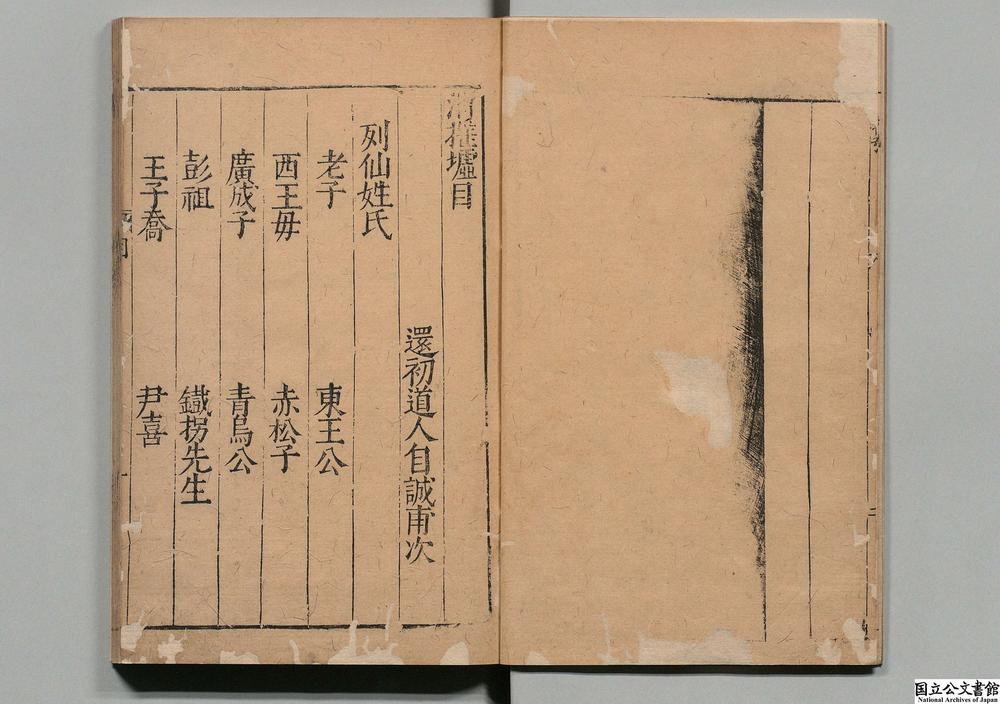 消搖墟目
還初道人自誠甫次
列仙姓氏
老子 東王公
西王毋 赤松子
廣成子 青烏公
彭祖 鐵拐先生
王子喬 尹喜
国立公文書館
National Archives of Japan